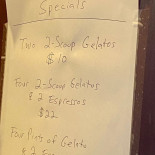 Specials
Two 2-Scoop Gelatos
$10
Four 2-Scoop Gelatos
& 2 Espressos
$22
Four Pints of Gelato
& 2